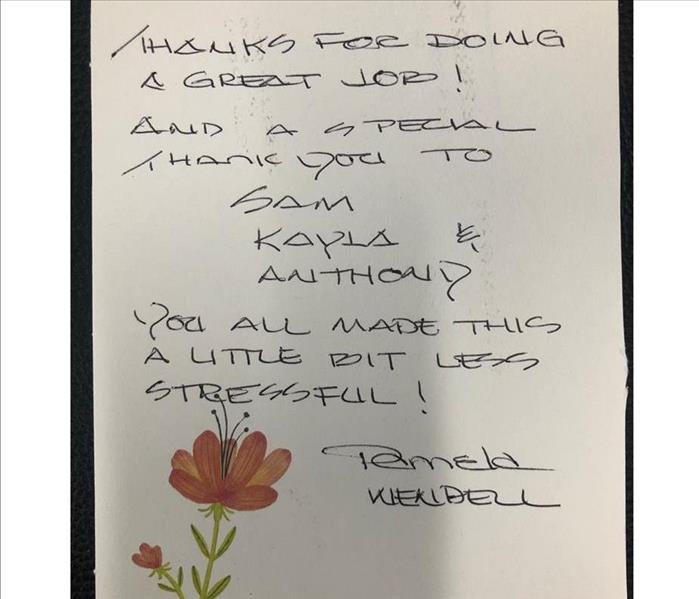 THANKS FOR DOING
A GREAT JOB!
AND A SPECIAL
THANK YOU TO
SAM
KAYLA &
ANTHONY
YOU ALL MADE THIS
A LITTLE BIT LESS
STRESSFUL!
Pamela
WENDELL